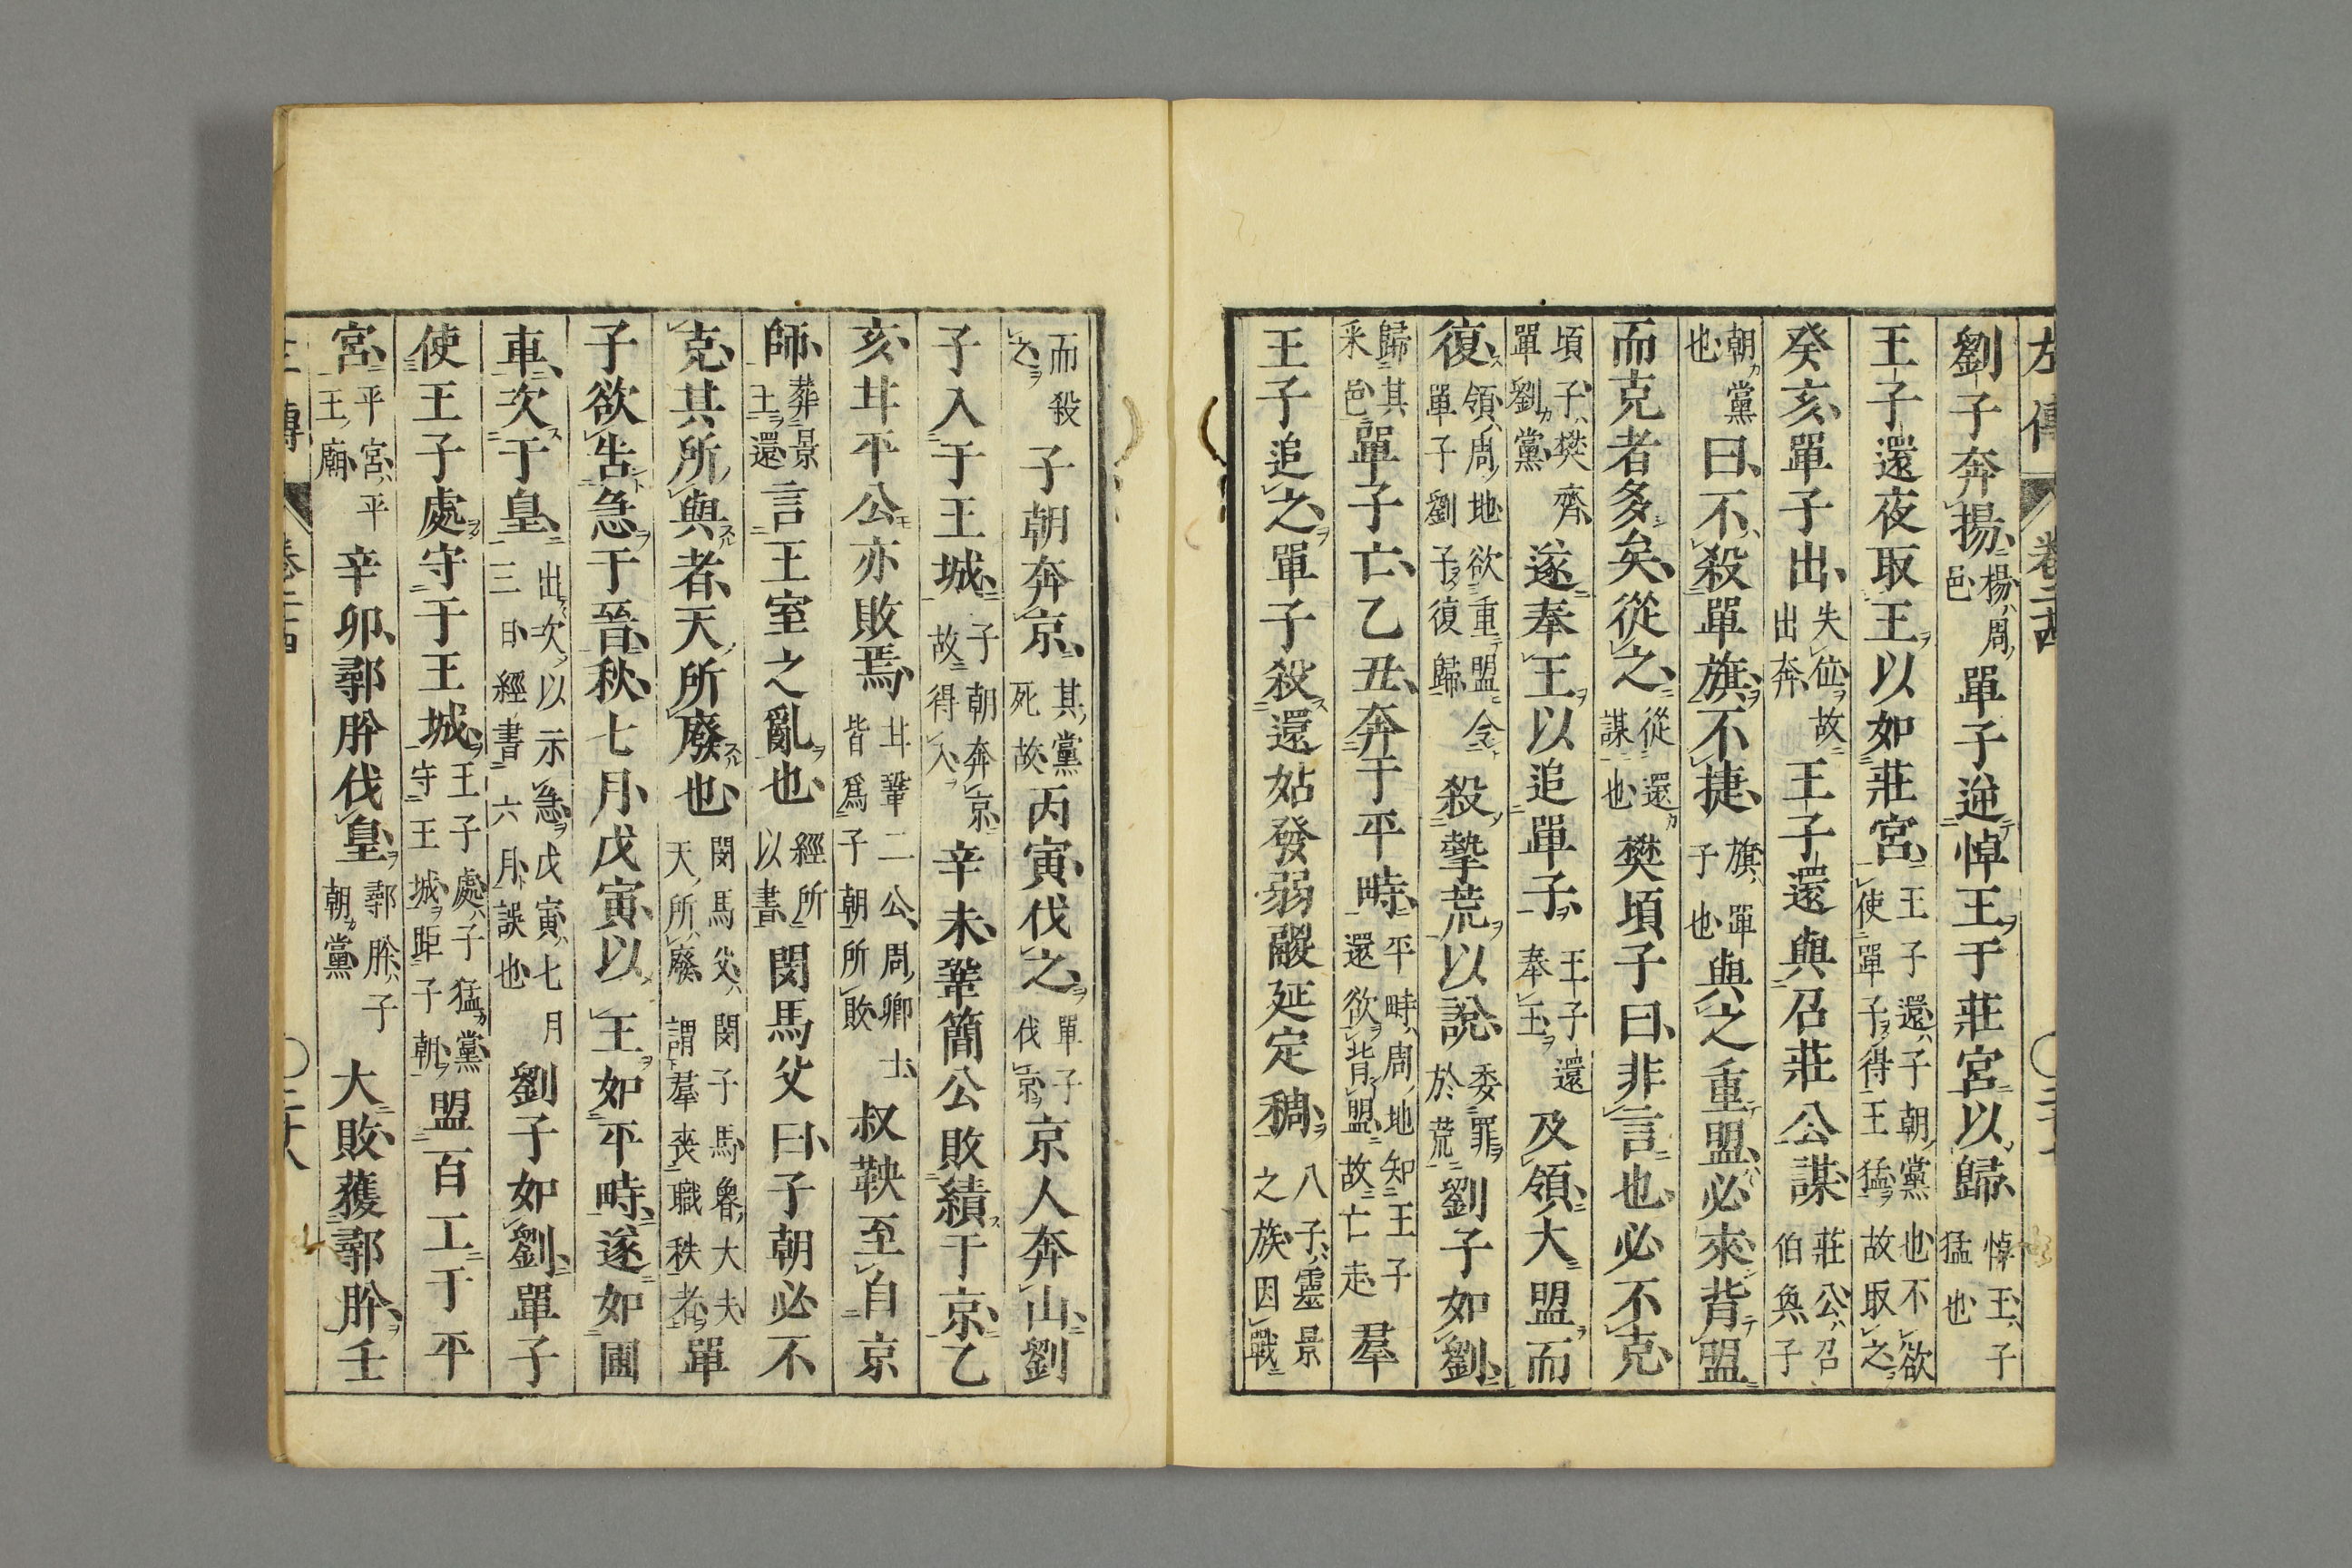 左傳 卷二十四
劉子奔揚揚周邑單子逆悼王于莊宮以歸悼王子猛也
王子還夜取王以如莊宮王子還子朝黨也不欲使單子得王猛故取之
癸亥單子出失位故出奔王子還與召莊公謀莊公召伯奐子
朝黨也曰不殺單旗不捷旗單子也與之重盟必來背盟
而克者多矣從之從還謀也樊頃子曰非言也必不克
頃子樊齊單劉黨遂奉王以追單子王子還奉王及領大盟而
復領周地欲重盟令單子劉子復歸殺摯荒以說委罪於荒劉子如劉
歸其采邑單子亡乙丑奔于平畤平畤周地知王子還欲背盟故亡走羣
王子追之單子殺還姑發弱鬷延定稠八子靈景之族因戰
而殺之子朝奔京其黨死故丙寅伐之單子伐京京人奔山劉
子入于王城子朝奔京故得入辛未鞏簡公敗績于京乙
亥甘平公亦敗焉甘鞏二公周卿士皆爲子朝所敗叔鞅至自京
師葬景王還言王室之亂也經所以書閔馬父曰子朝必不
克其所與者天所廢也閔馬父閔子馬魯大夫天所廢謂羣喪職秩者單
子欲告急于晉秋七月戊寅以王如平畤遂如圃
車次于皇出次以示急戊寅七月三日經書六月誤也劉子如劉單子
使王子處守于王城王子處子猛黨守王城距子朝盟百工于平
宮平宮平王廟辛卯鄩肸伐皇鄩肸子朝黨大敗獲鄩肸壬
左傳 卷二十四 二十八